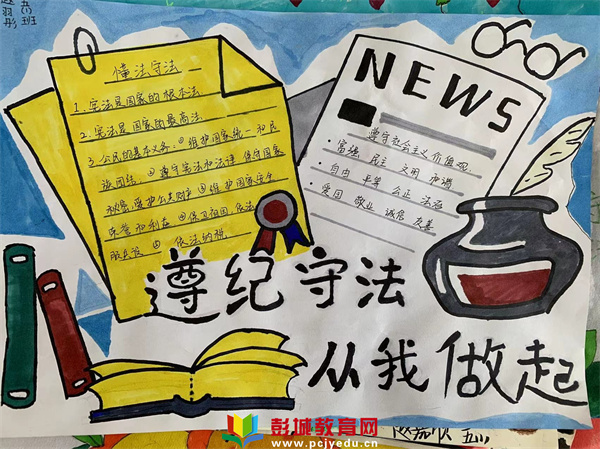 懂法守法
1. 宪法是国家的根本法
2. 宪法是国家的最高法
3. 公民的基本义务: ①维护国家统一和民
族团结 ②遵守宪法和法律 保守国家
秘密爱护公共财产 ③维护国家安全
荣誉和利益 ④保卫祖国 依法
服兵役 ⑤ 依法纳税
NEWS
遵守社会主义价值观
· 富强 民主 文明 和谐
· 自由 平等 公正 法治
· 爱国 敬业 诚信 友善
遵纪守法
从我做起
彭城教育网
www.pcjyedu.cn